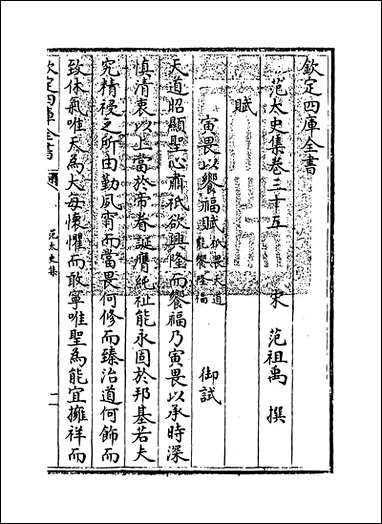 欽定四庫全書
范太史集卷三十五
宋 范祖禹 撰
賦
寅畏以饗福賦 御試
天道昭顯聖心肅祇欲興隆而饗福乃寅畏以承時深
慎清衷以上當於帝眷誕膺純祉能永固於邦基若夫
究精祲之所由勤夙宵而當畏何修而臻治道何飾而
致休氣唯天為大每懷懼而敢寧唯聖為能宜擁祥而
欽定四庫全書
范太史集